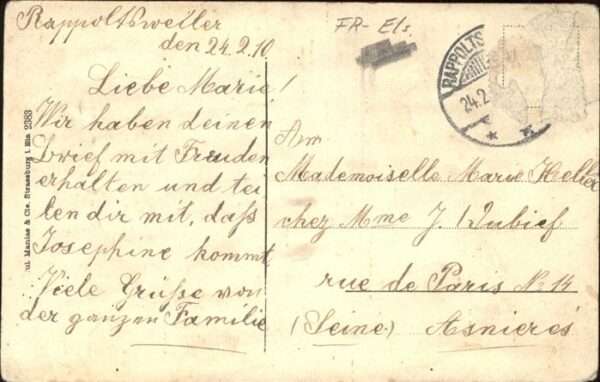 Rappoltsweiler
den 24.2.10
Liebe Marie!
Wir haben deinen
Brief mit Freuden
erhalten und tei
len dir mit, daß
Josephine kommt
Viele Grüße von
der ganzen Familie
FR- Els.
RAPPOLTS
24.2
Am
Mademoiselle Marie Keller
chez Mme J. Dubief
rue de Paris No 14
(Seine) Asnieres
Manias & Cie. Strassburg i. Els. 2383